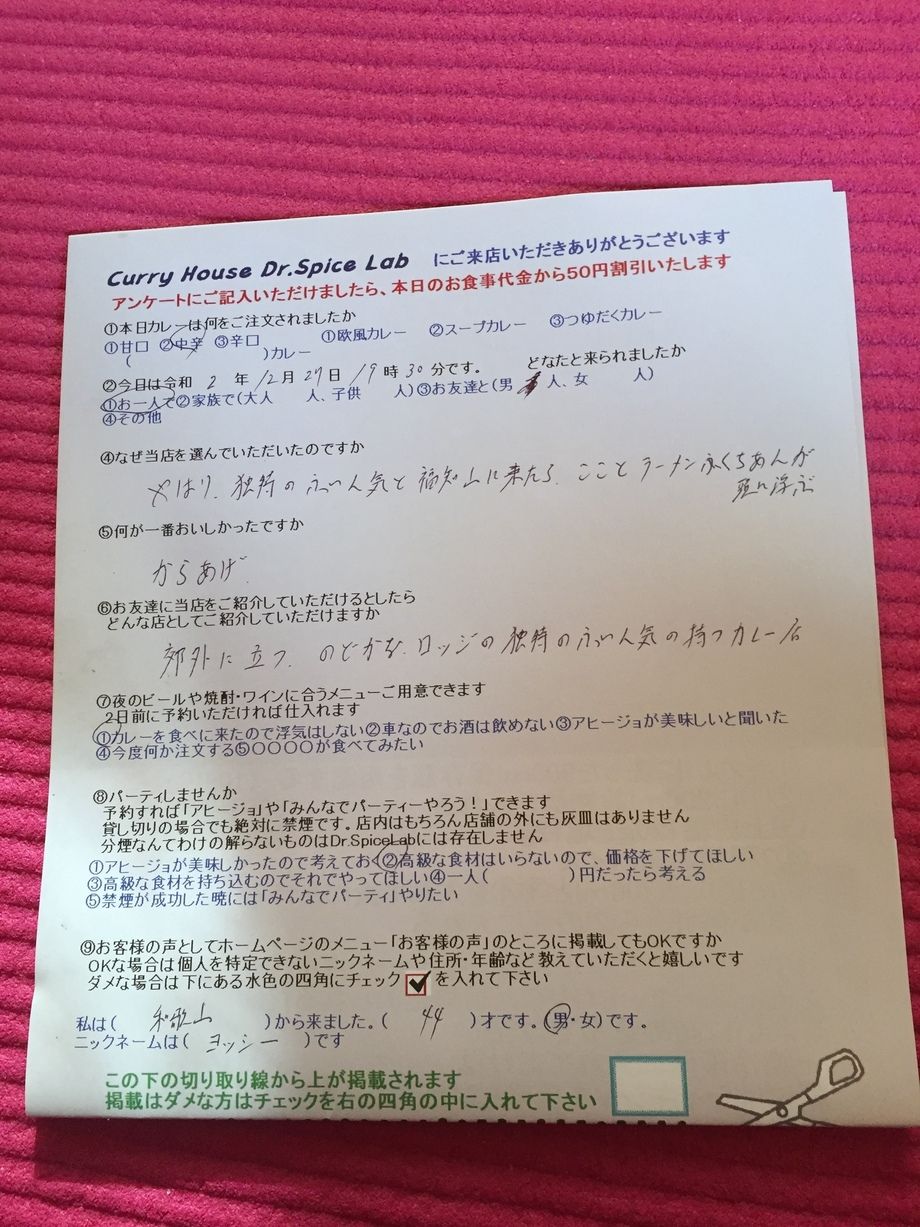 Curry House Dr.Spice Lab にご来店いただきありがとうございます
アンケートにご記入いただけましたら、本日のお食事代金から50円割引いたします
①本日カレーは何をご注文されましたか
①甘口 ②中辛 ③辛口 ①欧風カレー ②スープカレー ③つゆだくカレー
( )カレー
②今日は令和 2 年 12月 27日 19時 30分です。 どなたと来られましたか
①お一人で②家族で(大人 人、子供 人)③お友達と(男 人、女 人)
④その他
④なぜ当店を選んでいただいたのですか
やはり、独特のふん人気と福知山に来たら、ここと ラーメンふくちあんが
頭に浮ぶ
⑤何が一番おいしかったですか
からあげ
⑥お友達に当店をご紹介していただけるとしたら
どんな店としてご紹介していただけますか
郊外に立つ、のどかな、ロッジの独特のふん人気の持つカレー店
⑦夜のビールや焼酎・ワインに合うメニューご用意できます
2日前に予約いただければ仕入れます
①カレーを食べに来たので浮気はしない②車なのでお酒は飲めない③アヒージョが美味しいと聞いた
④今度何か注文する⑤〇〇〇〇が食べてみたい
⑧パーティしませんか
予約すれば「アヒージョ」や「みんなでパーティーやろう!」できます
貸し切りの場合でも絶対に禁煙です。店内はもちろん店舗の外にも灰皿はありません
分煙なんてわけの解らないものはDr.SpiceLabには存在しません
①アヒージョが美味しかったので考えておく②高級な食材はいらないので、価格を下げてほしい
③高級な食材を持ち込むのでそれでやってほしい④一人( )円だったら考える
⑤禁煙が成功した暁には「みんなでパーティ」やりたい
⑨お客様の声としてホームページのメニュー「お客様の声」のところに掲載してもOKですか
OKな場合は個人を特定できないニックネームや住所・年齢など教えていただくと嬉しいです
ダメな場合は下にある水色の四角にチェック を入れて下さい
私は( 和歌山 )から来ました。( 44 )才です。(男・女)です。
ニックネームは( ヨッシー )です
この下の切り取り線から上が掲載されます
掲載はダメな方はチェックを右の四角の中に入れて下さい